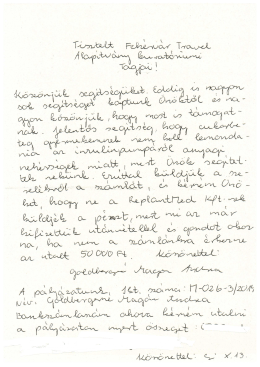 Tisztelt Fehérvár Travel
Alapítvány Kuratóriumi
Tagjai!
Köszönjük segítségüket. Eddig is nagyon
sok segítséget kaptunk Önöktől és na-
gyon köszönjük, hogy most is támogat-
nak. Jelentős segítség, hogy cukorbe-
teg gyermekemnek nem kell lemonda-
nia az inzulinpumpáról anyagi
nehézségek miatt, mert Önök segítet-
tek nekünk. Ezúttal küldjük a sze-
relékről a számlát, és kérem Önö-
ket, hogy ne a Replantmed Kft-nek
küldjék a pénzt, mert mi azt már
kifizettük utánvéttel és gondot okoz-
na, ha nem a számlánkra érkezne
az utalt 50 000 Ft. Köszönettel:
Goldbergerné Magor Andrea
A pályázatunk, ikt. száma: M-026-3/2019
Név: Goldbergerné Magor Andrea
Bankszámlaszám ahova kérném utalni
a pályázaton nyert összeget:
Köszönettel: X. 13.